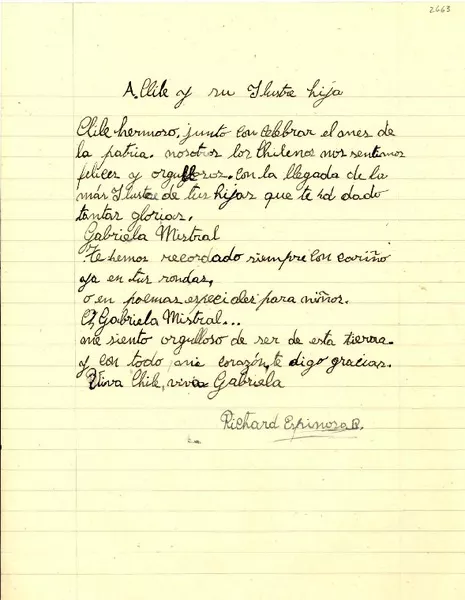 2663
A Chile y su Ilustre hija
Chile hermoso, junto con celebrar el mes de
la patria. nosotros los Chilenos nos sentimos
felices y orgullosos. con la llegada de la
más Ilustre de tus hijas que te ha dado
tantas glorias.
Gabriela Mistral
Te hemos recordado siempre con cariño
ya en tus rondas,
o en poemas especiales para niños.
Gabriela Mistral...
me siento orgulloso de ser de esta tierra
y con todo mi corazón, te digo gracias.
Viva Chile, viva Gabriela
Richard Espinoza R.